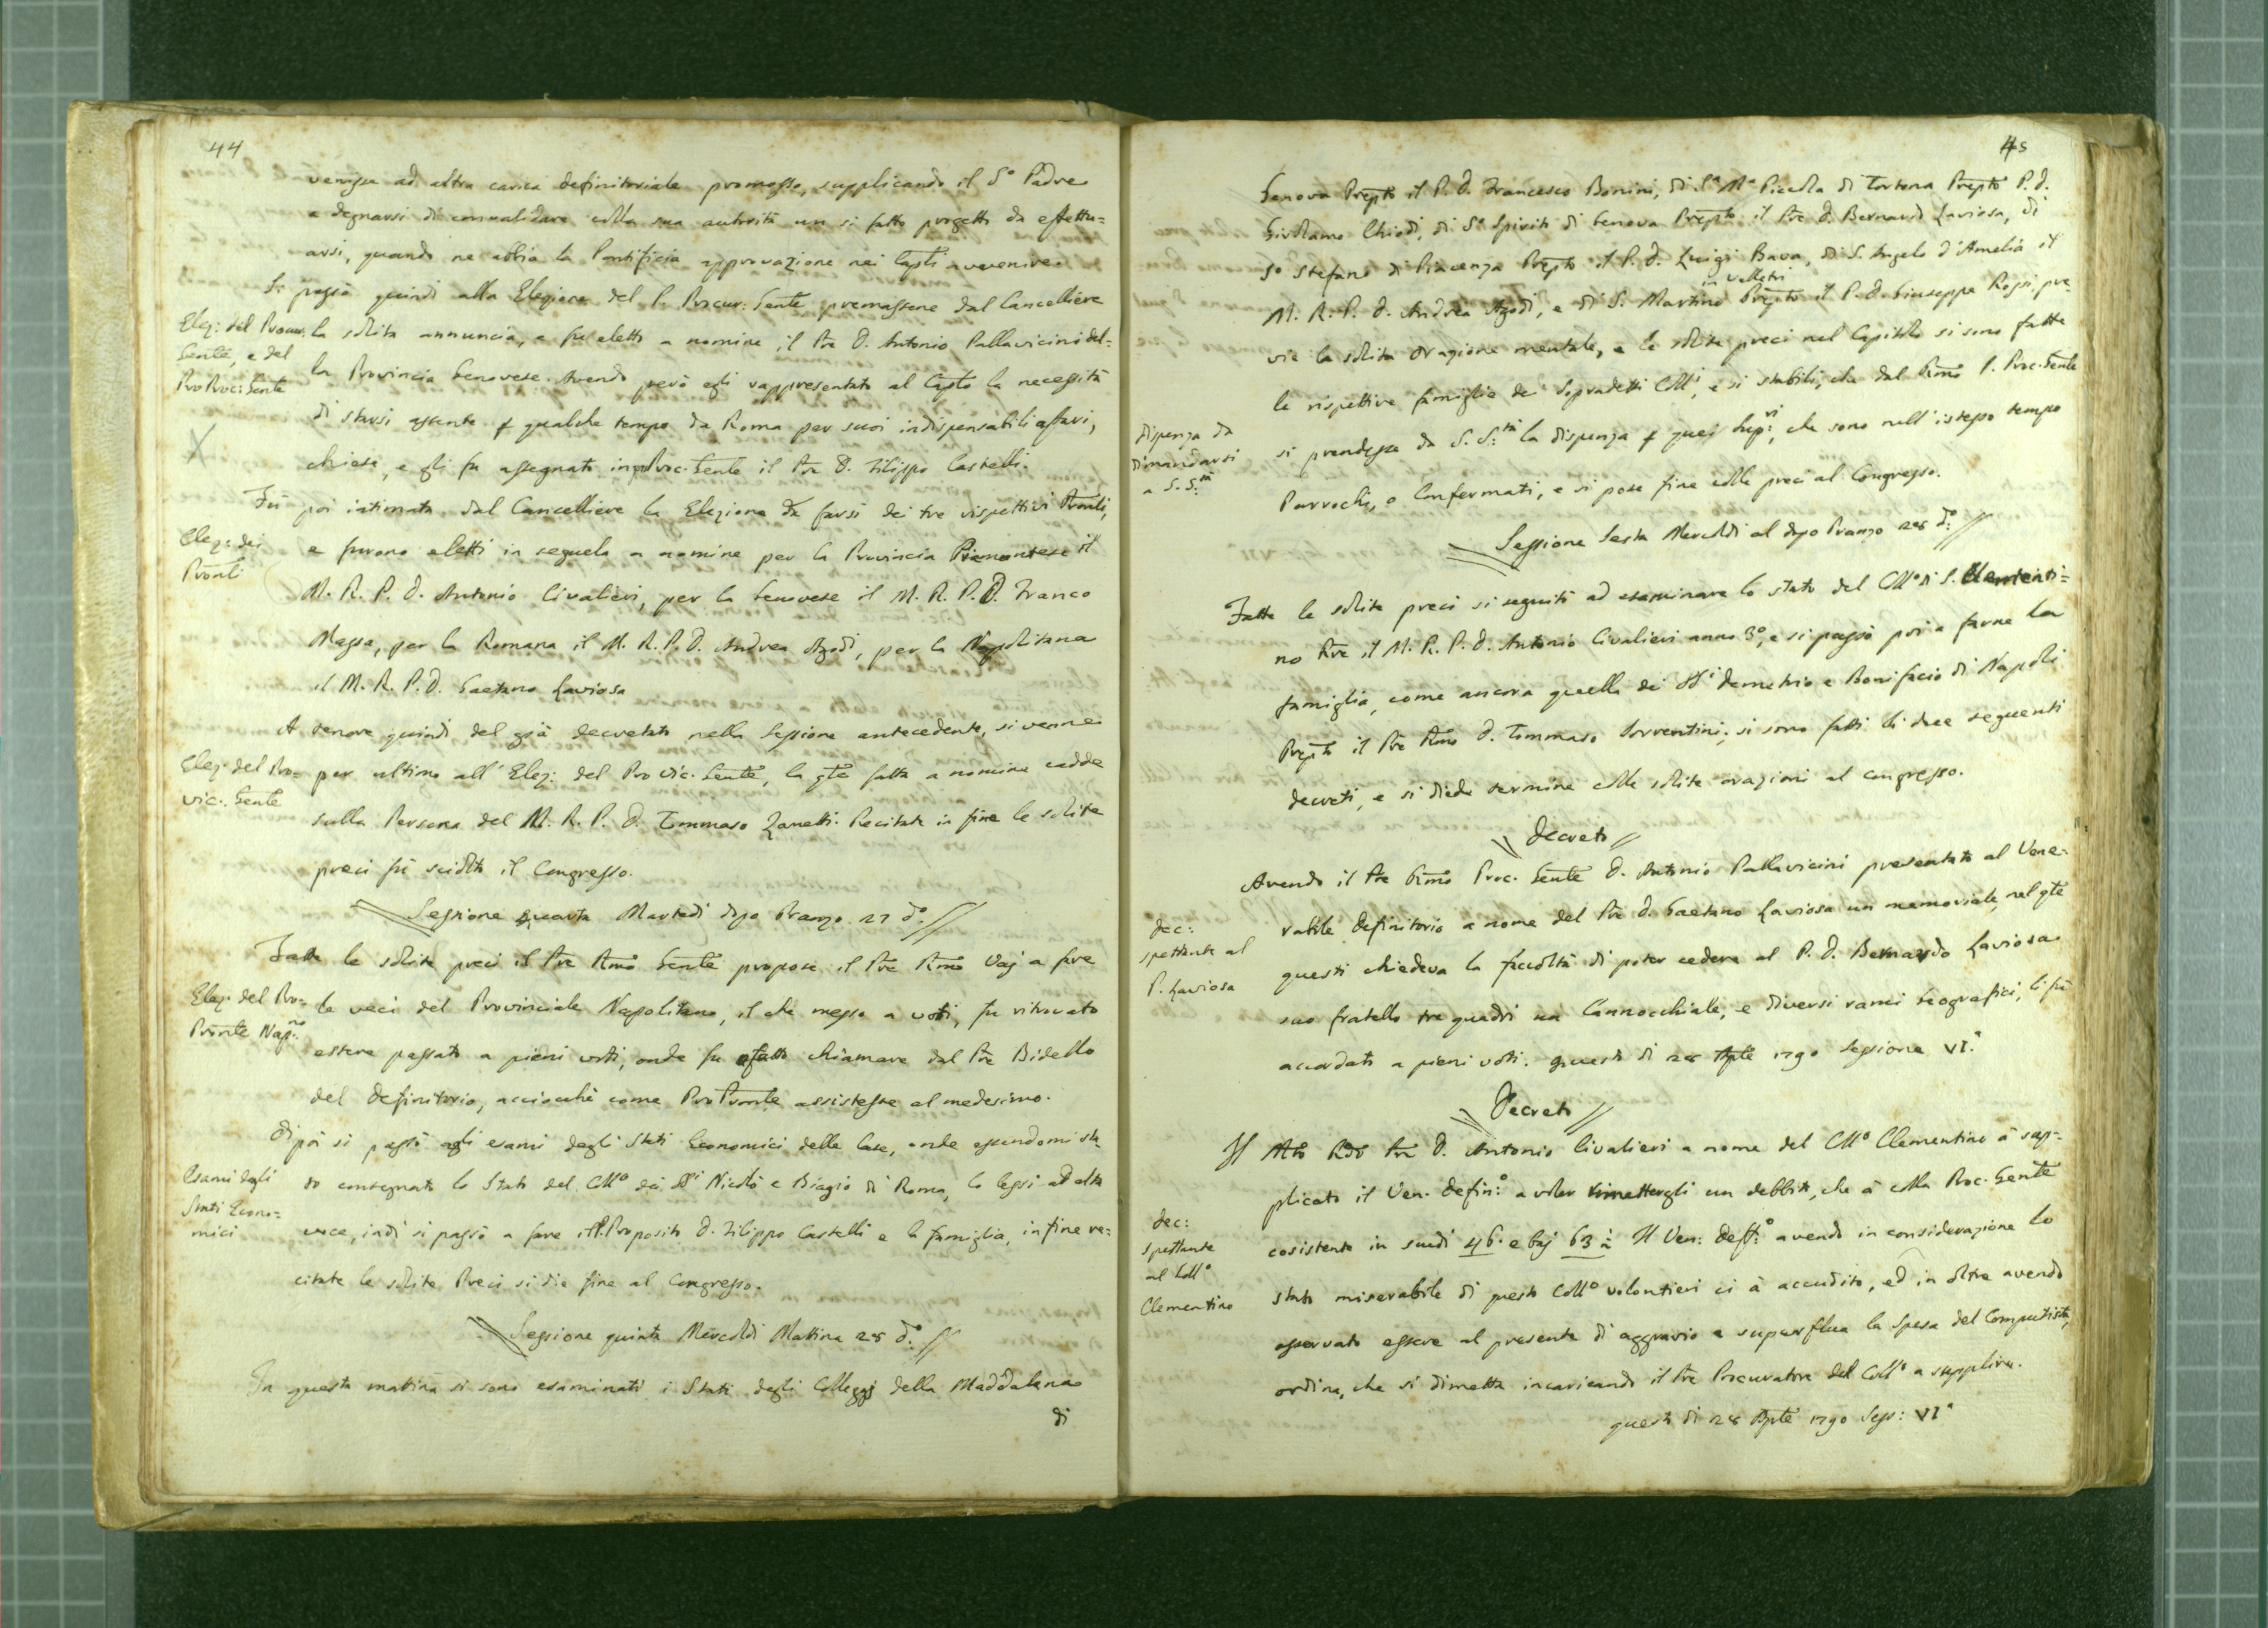 44
venisse ad altra carica definitoriale promosso, supplicando il S.º Padre
a degnarsi di convalidare colla sua autorità un si fatto progetto da effettu=
arsi, quando ne abbia la Pontificia approvazione nei Caplti avvenire.
Si passò quindi alla Elezione del P. Procur: Gente premassene dal Cancelliere
Elez: del Procur. la solita annuncia, e fu eletto a nomine il Pre D. Antonio Pallavicini del=
Gente, e del
ProProc: Gente
la Provincia Genovese. Avendo però egli rappresentato al Caplto la necessità
di starsi assente p qualche tempo da Roma per suoi indispensabili affari,
X
chiese, e gli fu assegnato in pProc. Gente il Pre D. Filippo Castelli.
Fù poi intimata dal Cancelliere la Elezione da farsi dei tre rispettivi Pronli,
Elez: dei
Pronli
e furono eletti in seguela a nomine per la Provincia Piemontese il
M. R. P. D. Antonio Civalieri, per la Genovese il M. R. P. D. Franco
Massa, per la Romana il M. R. P. D. Andrea Azodi, per la Napolitana
il M. R. P. D. Gaetano Laviosa
A tenore quindi del già decretato nella Sessione antecedente, si venne
Elez. del Pro=
vic. Gente
per ultimo all' Elez: del Pro Vic. Gente, la qte fatta a nomine cadde
sulla Persona del M. R. P. D. Tommaso Zanetti. Recitate in fine le solite
preci fù sciolto il Congresso.
Sessione quarta Martedi dopo Pranzo 27 dº.
Fatte le solite preci il Pre Rmo Gente propose il Pre Rmo Vaj a fare
Elez. del Pro=
Pronte Napno
le veci del Provinciale Napolitano, il che messo a voti, fu ritrovato
essere passato a pieni voti, onde fu fatto chiamare dal Pre Bidello
del Definitorio, acciocchè come ProPronle assistesse al medesimo.
Di poi si passò agli esami degli Stati Economici delle Case, onde essendomi sta=
Esami degli
Stati Econo=
mici
to consegnato lo Stato del Collº dei SSi Nicolò e Biagio di Roma, lo lessi ad alta
voce, indi si passò a fare il P. Proposito D. Filippo Castelli e la famiglia, infine re=
citate le solite Preci si die fine al Congresso.
Sessione quinta Mercoldi Mattina 28 dº.
In questa mattina si sono esaminati i Stati degli Colleggj della Maddalena
di
45
Genova Prepto il P. D. Francesco Bonini, di Sª Mª Piccola di Tortona Prepto P. D.
Girolamo Chiodi, di Sº Spirito di Genova Prepto il Pre D. Bernardo Laviosa, di
Sº Stefano di Piacenza Prepto il P. D. Luigi Bava, di S. Angelo d'Amelia il
in Velletri
M. R. P. D. Andrea Azodi, e di S. Martino Prepto il P. D. Giuseppe Rossi, pre=
via la solita oragione mentale, e le solite preci nel Capitolo si sono fatte
le rispettive famiglie dei sopradetti Colli, e si stabilì, che dal Rmo P. Proc. Gente
Dispenza da
dimandarsi
a S. S.tà
si prendesse da S. S.tà la dispenza p quei Sup:vi, che sono nell' istesso tempo
Parrochi, o Confermati, e si pose fine colle preci al Congresso.
Sessione Sesta Mercoldì al dopo Pranzo 28 dº.
Fatte le solite preci si seguitò ad esaminare lo stato del Collº di S. Clementi=
no Pre il M. R. P. D. Antonio Civalieri anno 3º, e si passò poi a farne la
famiglia, come ancora quella dei SSi Demetrio e Bonifacio di Napoli
Prepto il Pre Rmo D. Tommaso Sorrentini; si sono fatti li due seguenti
decreti, e si diede termine colle solite orazioni al congresso.
Decreto
Avendo il Pre Rmo Proc. Gente D. Antonio Pallavicini presentato al Vene=
dec:
spettante al
P. Laviosa
rabile Definitorio a nome del Pre D. Gaetano Laviosa un memoriale, nel qte
questi chiedeva la facoltà di poter cedere al P. D. Bernardo Laviosa
suo fratello tre quadri un Cannocchiale, e diversi rami Geografici, li fù
accordato a pieni voti. questo di 28 Aple 1790 Sessione VI.ª
Decreto
Il Mto Rdo Pre D. Antonio Civalieri a nome del Collº Clementino à sup=
plicato il Ven. Defin:º a voler rimettergli un debbito, che à colla Proc. Gente
dec:
spettante
al Collº
Clementino
cosistente in scudi 46. e baj 63 ½ Il Ven: Deff:º avendo in considerazione lo
stato miserabile di questo Collº volontieri ci à accudito, ed in oltre avendo
osservato essere al presente di aggravio e superflua la Spesa del Computista,
ordina, che si dimetta incaricando il Pre Procuratore del Collº a supplire.
questo di 28 Aple 1790 Sess: VIª